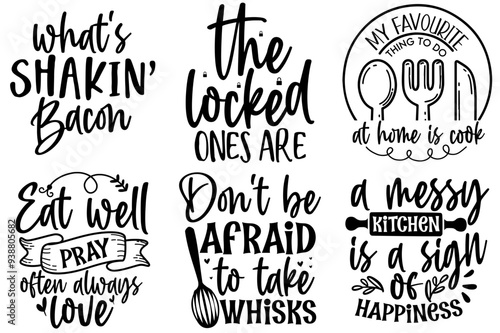 what's
SHAKIN'
Bacon
the
locked
ONES ARE
MY FAVOURITE
THING TO DO
at home is cook
Eat well
PRAY
often always
love
Don't be
AFRAID
to take
WHISKS
a messy
KITCHEN
is a sign
of
HAPPINESS
938805682